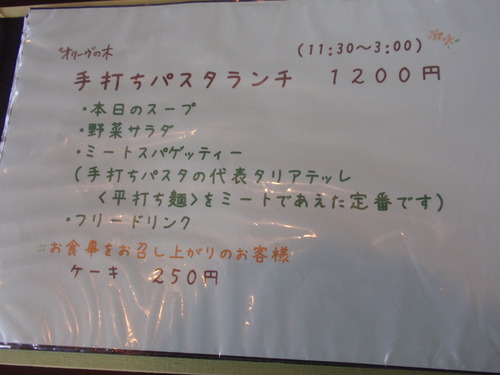 "オリーヴの木
(11:30～3:00)
手打ちパスタランチ 1200円
・本日のスープ
・野菜サラダ
・ミートスパゲッティー
(手打ちパスタの代表タリアテッレ
〈平打ち麺〉をミートであえた定番です)
・フリードリンク
※お食事をお召し上がりのお客様
ケーキ 250円